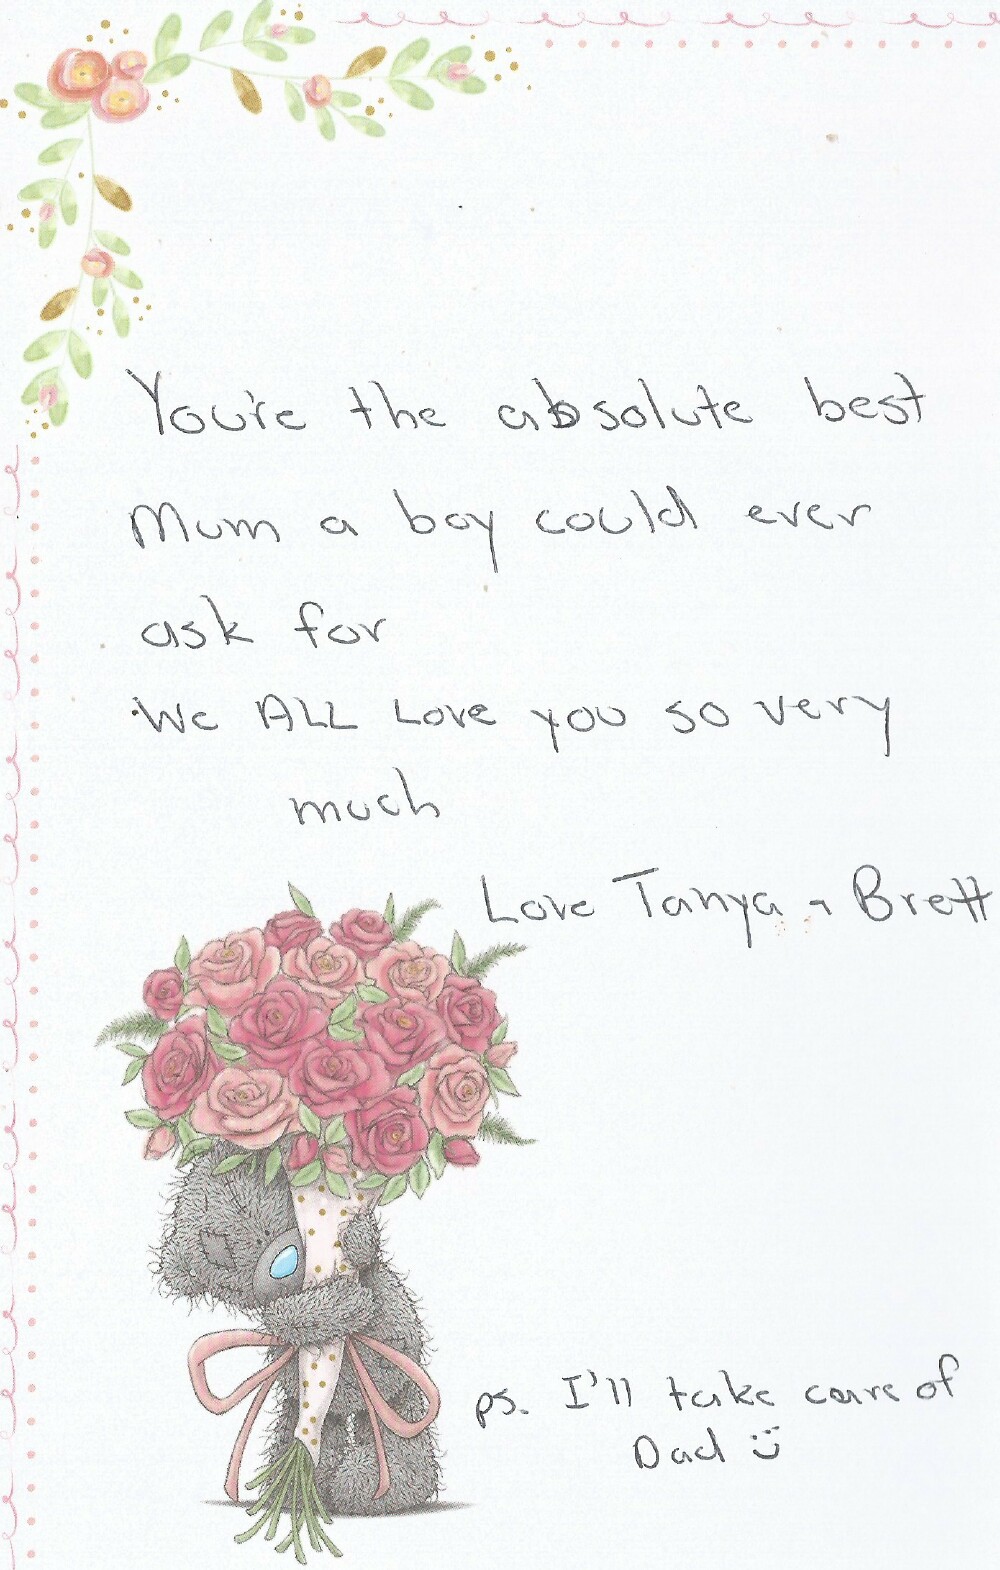 You're the absolute best
Mum a boy could ever
ask for
We ALL Love you so very
much
Love Tanya + Brett
ps. I'll take care of
Dad :)